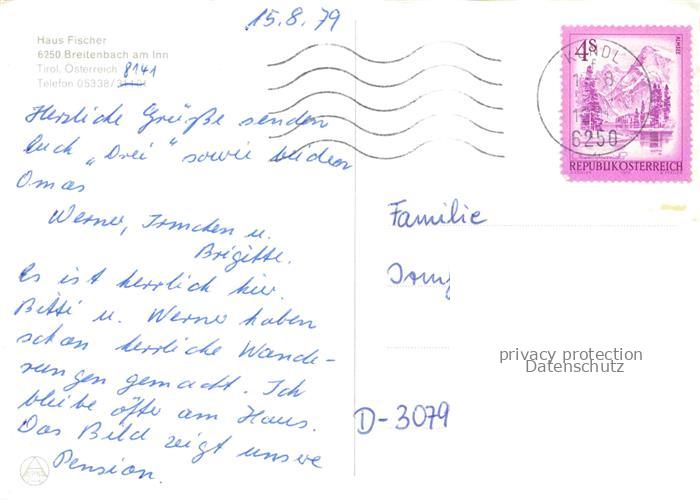 15.8.79
Haus Fischer
6250 Breitenbach am Inn
Tirol, Österreich 8141
Telefon 05338/
Herzliche Grüße senden
Euch „Drei" sowie beiden
Omas
Werner, Irmchen u.
Brigitte.
Es ist herrlich hier.
Bitti u. Werner haben
schon herrliche Wande-
rungen gemacht. Ich
bleibe öfter am Haus.
Das Bild zeigt unsere
Pension.
4s
ALMSEE
REPUBLIK ÖSTERREICH
KUNDL
6250
Familie
D-3079
privacy protection
Datenschutz